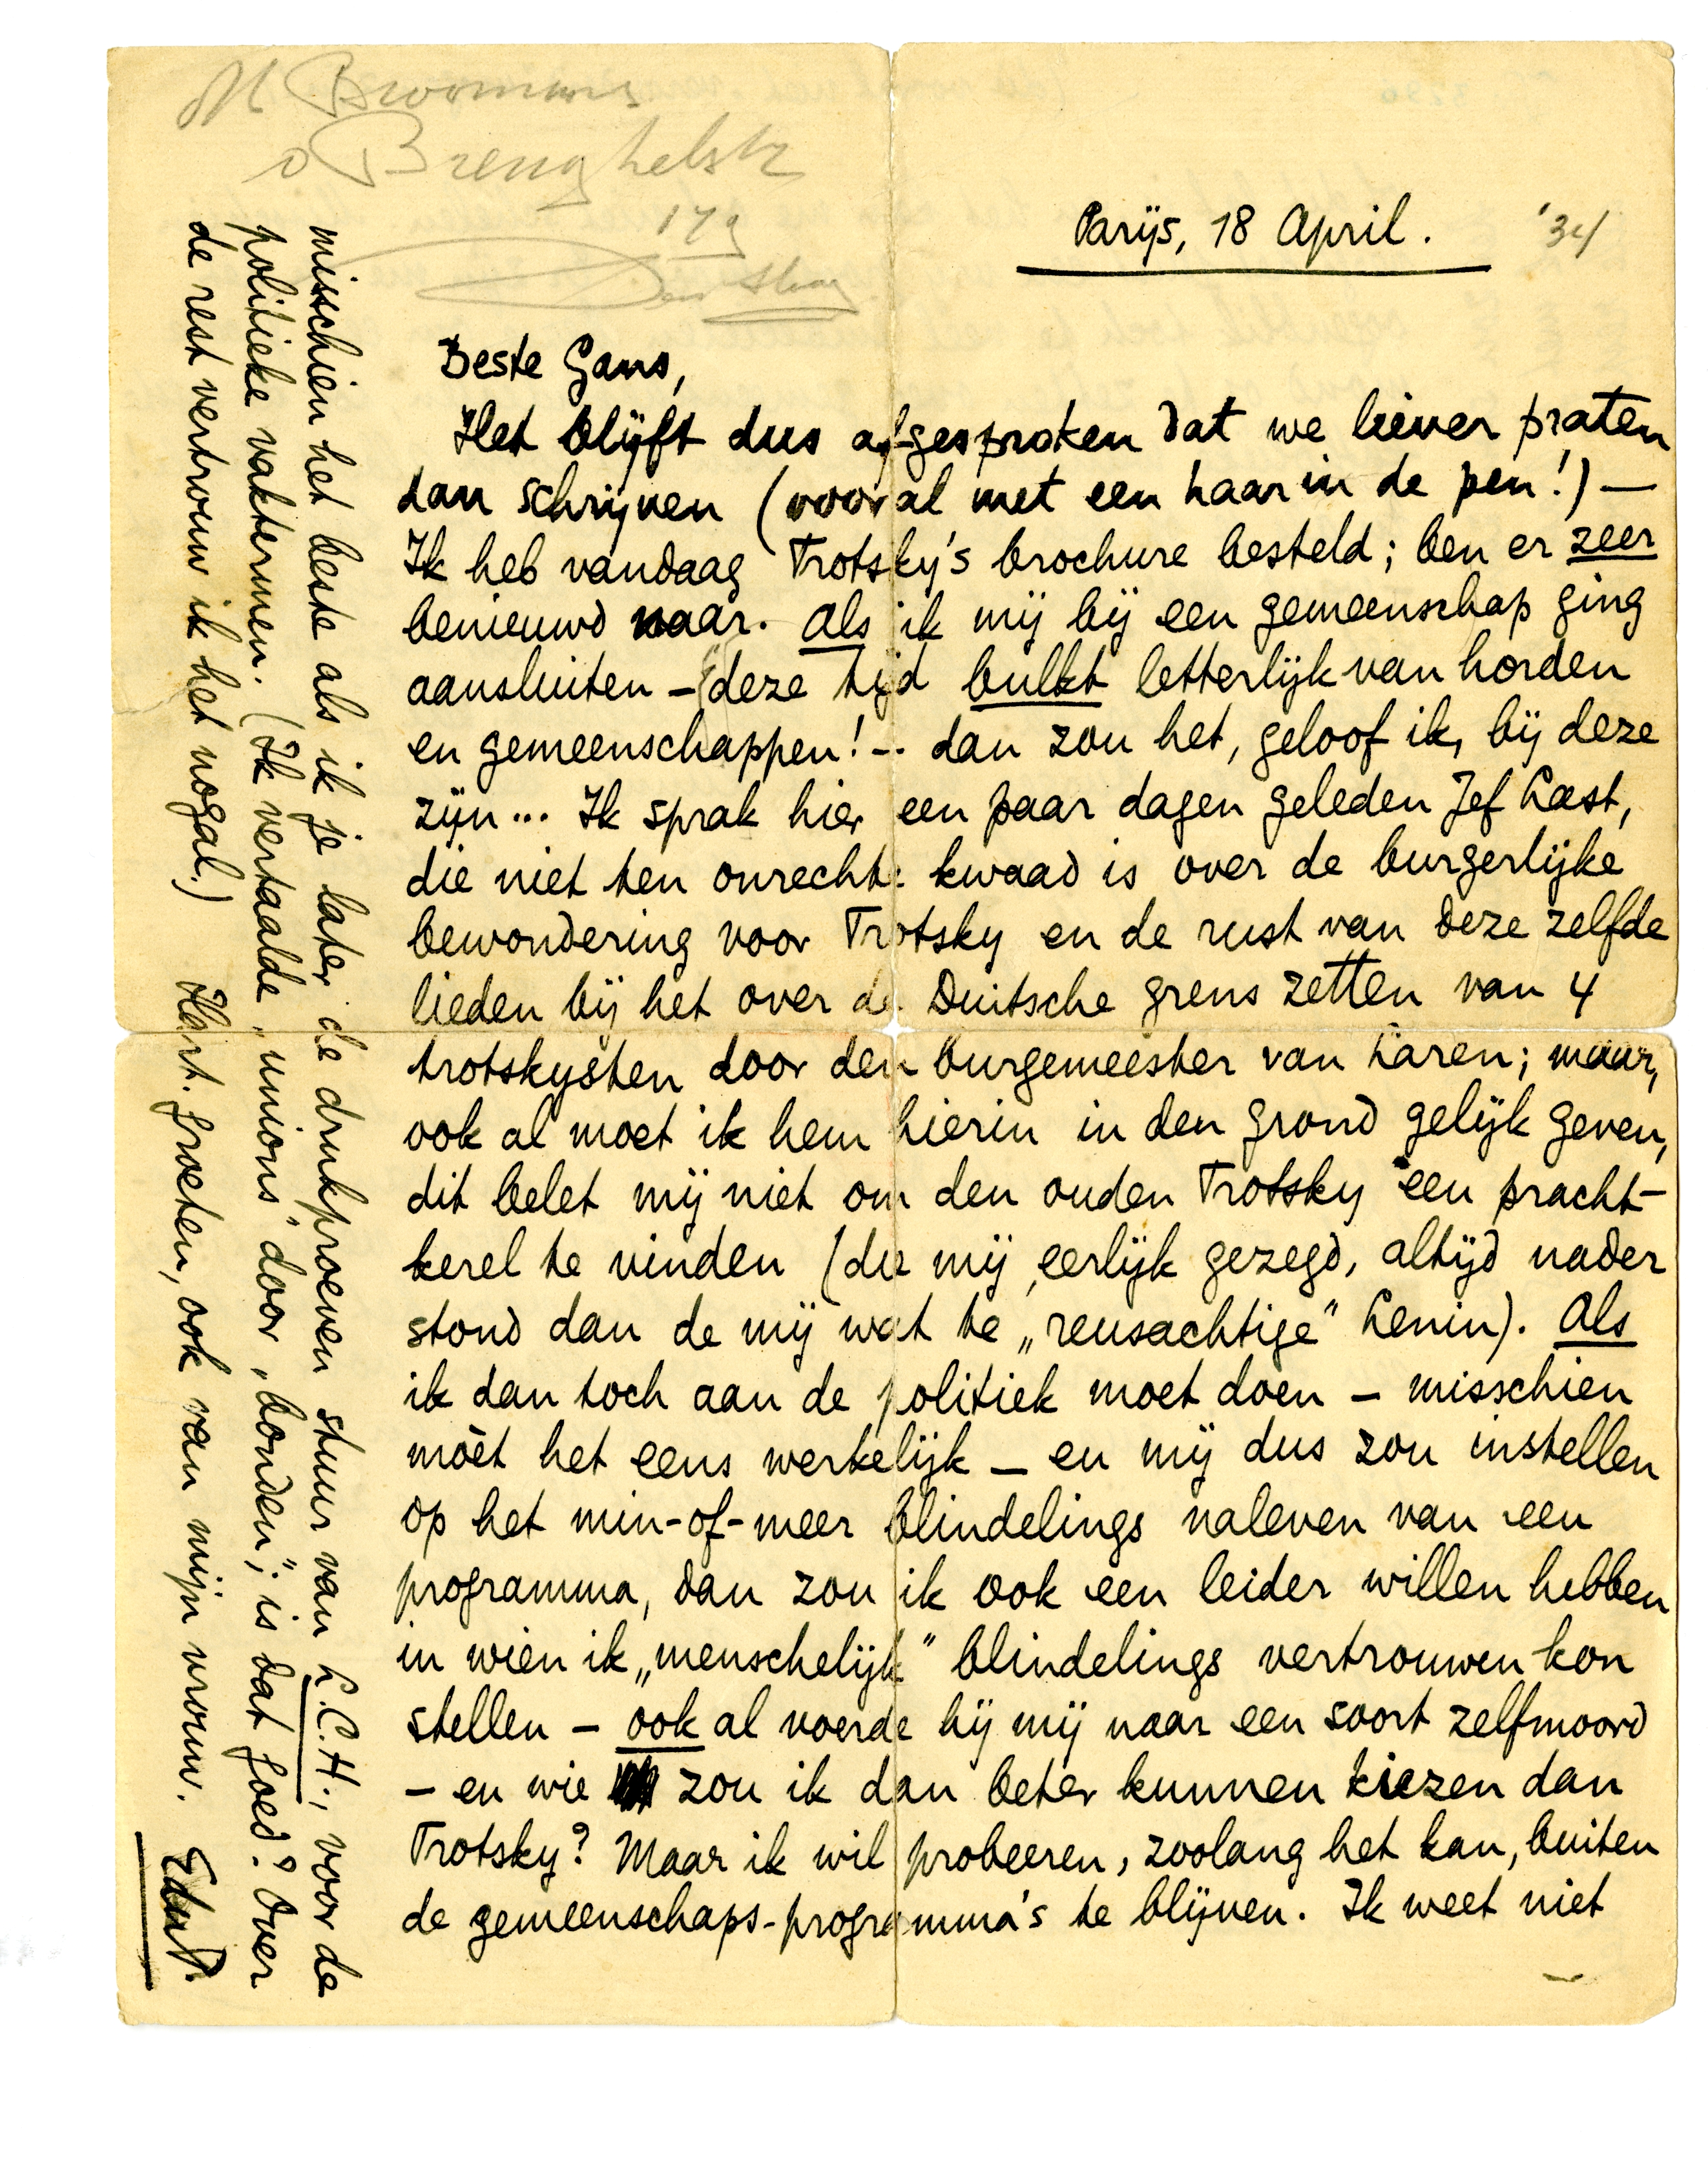 M Broomans
v Brenghelstr
179
Den Haag
Parijs, 18 April. '34
Beste Gans,
Het blijft dus afgesproken dat we liever praten
dan schrijven (vooral met een haar in de pen!) —
Ik heb vandaag Trotsky's brochure besteld; ben er zeer
benieuwd naar. Als ik mij bij een gemeenschap ging
aansluiten – (deze tijd bulkt letterlijk van horden
en gemeenschappen! – . dan zou het, geloof ik, bij deze
zijn... Ik sprak hier een paar dagen geleden Jef Last,
die niet ten onrechte kwaad is over de burgerlijke
bewondering voor Trotsky en de rust van deze zelfde
lieden bij het over de Duitsche grens zetten van 4
trotskysten door den burgemeester van Laren; maar,
ook al moet ik hem hierin in den grond gelijk geven,
dit belet mij niet om den ouden Trotsky een pracht-
kerel te vinden (die mij, eerlijk gezegd, altijd nader
stond dan de mij wat te „reusachtige" Lenin). Als
ik dan toch aan de politiek moet doen – misschien
móet het eens werkelijk – en mij dus zou instellen
op het min-of-meer blindelings naleven van een
programma, dan zou ik ook een leider willen hebben
in wien ik „menschelijk" blindelings vertrouwen kon
stellen – ook al voerde hij mij naar een soort zelfmoord
– en wie zou ik dan beter kunnen kiezen dan
Trotsky? Maar ik wil probeeren, zoolang het kan, buiten
de gemeenschaps-programma's te blijven. Ik weet niet
misschien het beste als ik je later de drukproeven stuur van L.C.H., voor de
politieke vaktermen. (Ik vertaalde „unions" door „bonden"; is dat goed? Over
de rest vertrouw ik het nogal.) Hart. groeten, ook van mijn vrouw. EduP.